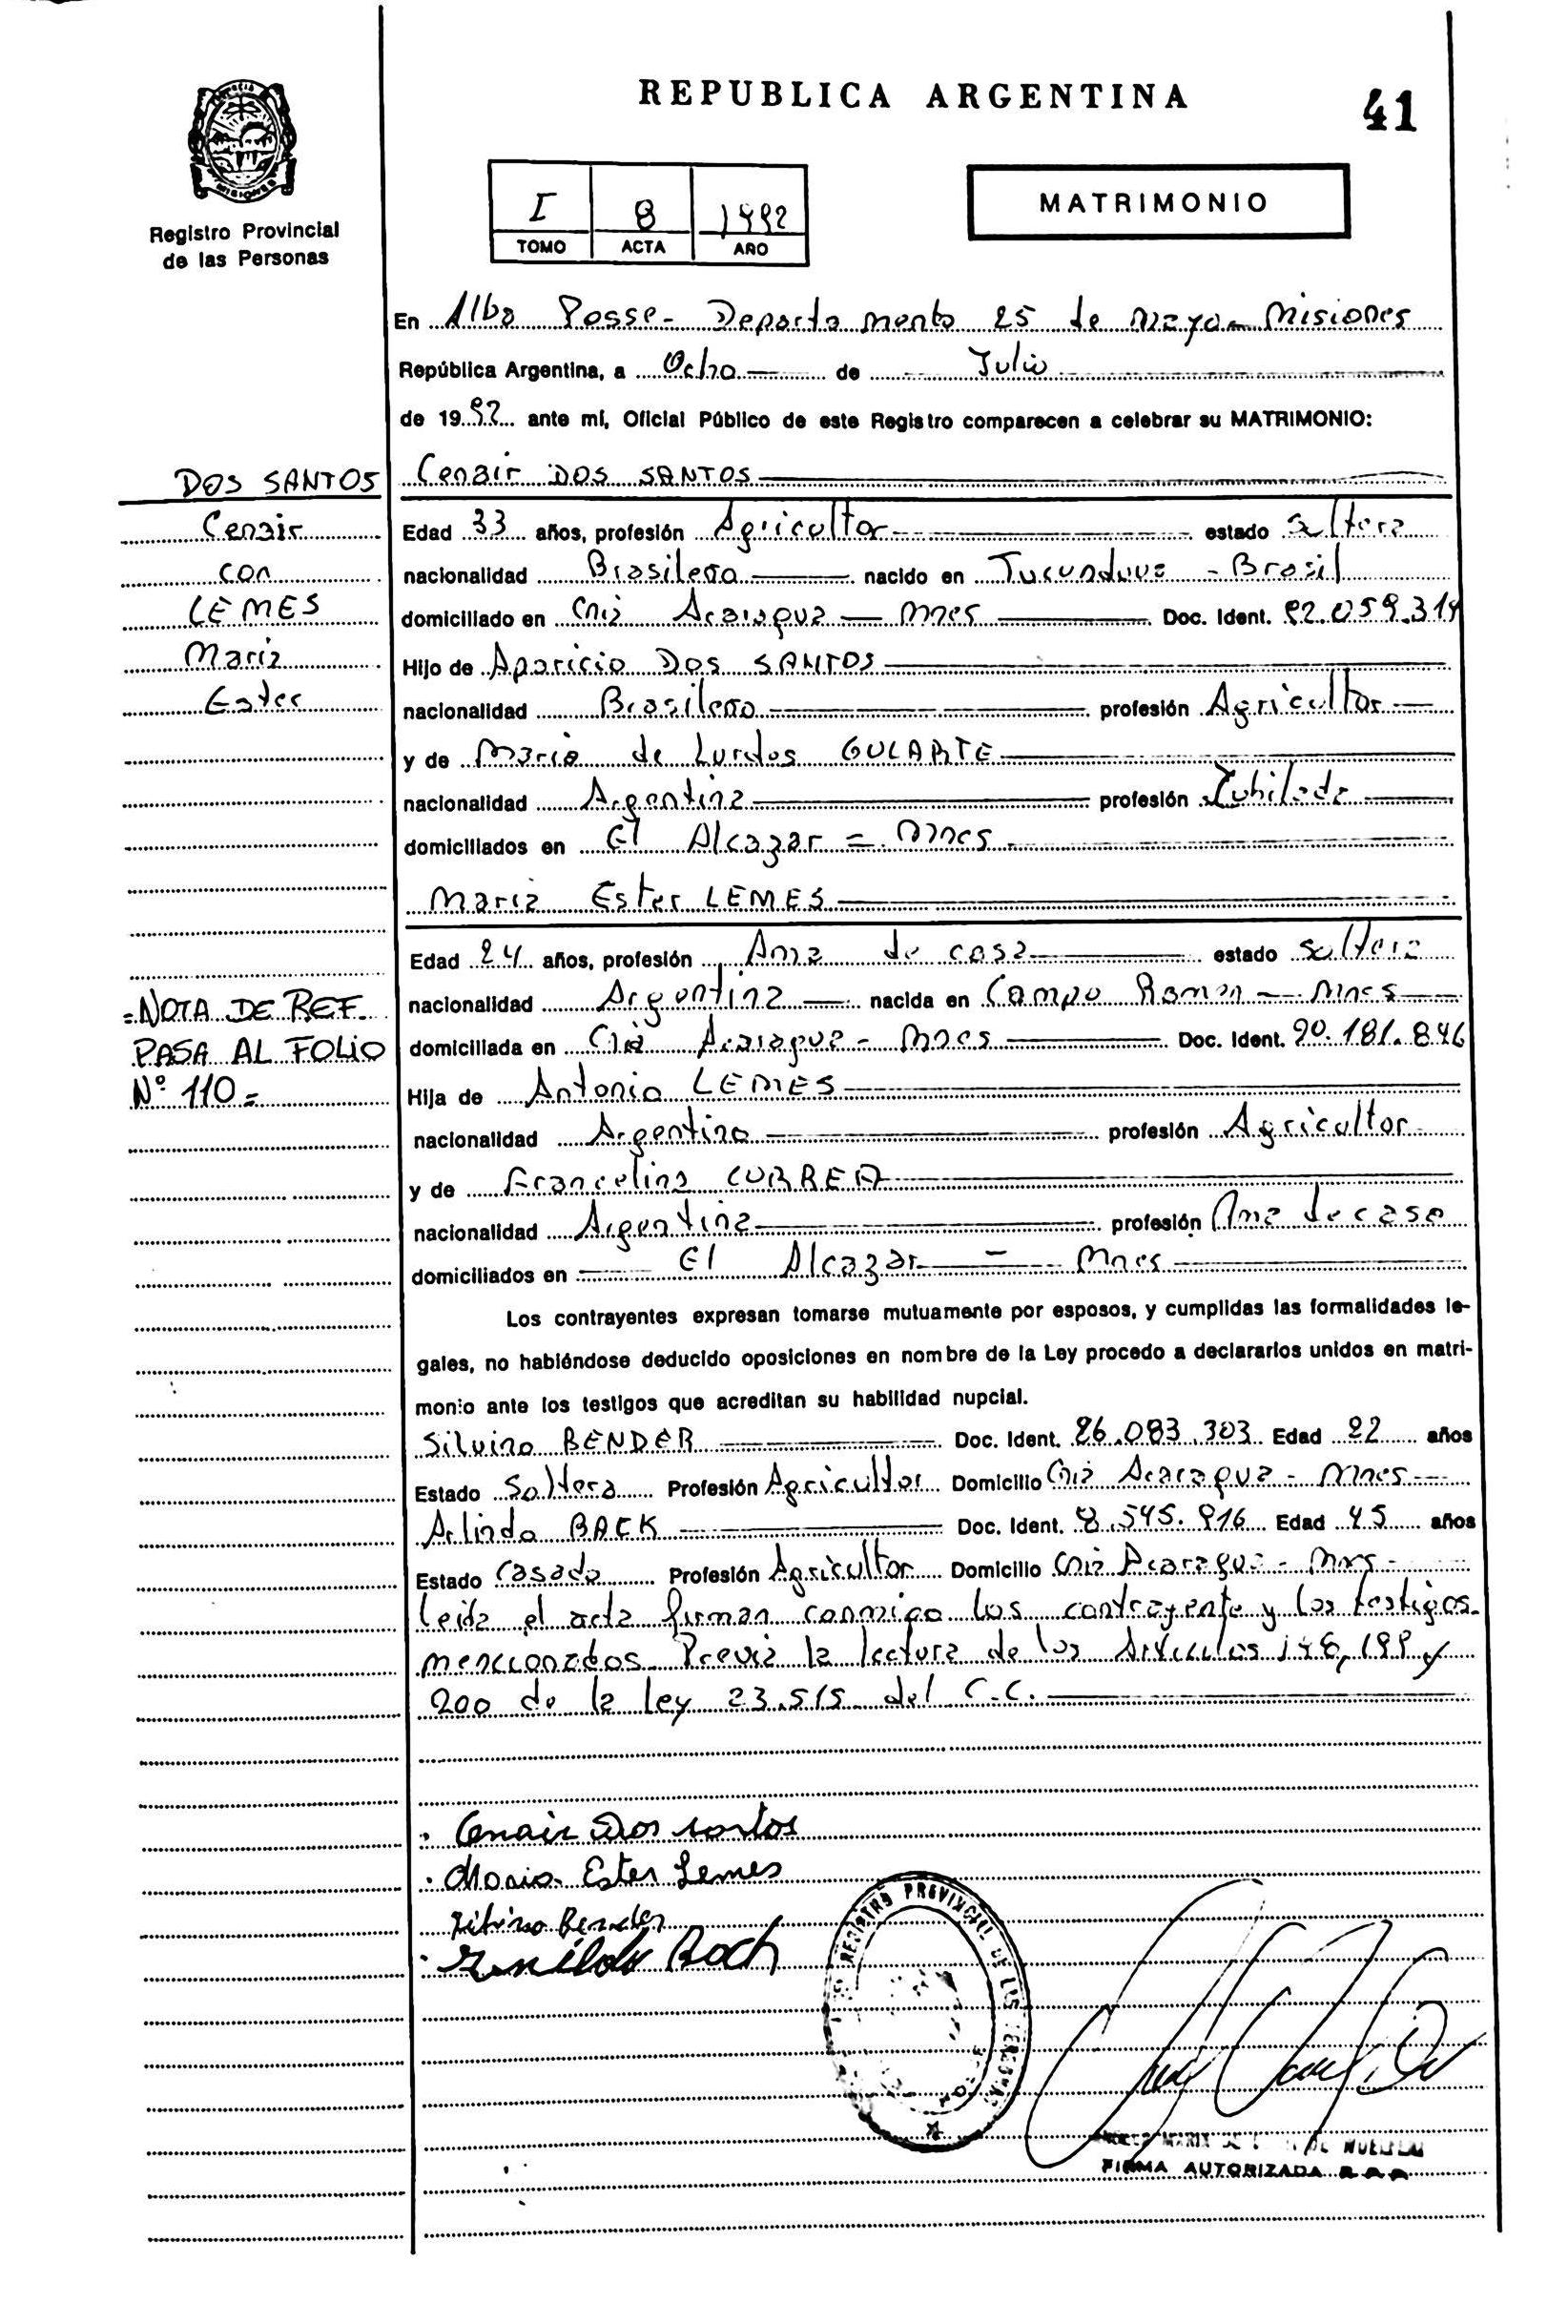 REPUBLICA ARGENTINA
41
MISIONES
Registro Provincial
de las Personas
I 8 1992
TOMO ACTA AÑO
MATRIMONIO
En Alba Posse - Departamento 25 de mayo - Misiones
República Argentina, a Ocho de Julio
de 1992 ante mí, Oficial Público de este Registro comparecen a celebrar su MATRIMONIO:
DOS SANTOS
Cenair
con
LEMES
Maria
Ester
Cenair DOS SANTOS
Edad 33 años, profesión Agricultor estado soltero
nacionalidad Brasilero nacido en Tucunduva - Brasil
domiciliado en Cnia Acaragua - Mnes Doc. Ident. 92.059.314
Hijo de Aparicio DOS SANTOS
nacionalidad Brasilero profesión Agricultor
y de Maria de Lurdes GULARTE
nacionalidad Argentina profesión Jubilada
domiciliados en El Alcazar = Mnes
Maria Ester LEMES
Edad 24 años, profesión Ama de casa estado soltera
nacionalidad Argentina nacida en Campo Ramon - Mnes
domiciliada en Cnia Acaragua - Mnes Doc. Ident. 20.181.846
Hija de Antonio LEMES
nacionalidad Argentino profesión Agricultor
y de Francelina CORREA
nacionalidad Argentina profesión Ama de casa
domiciliados en El Alcazar - Mnes
=NOTA DE REF.
PASA AL FOLIO
Nº 110=
Los contrayentes expresan tomarse mutuamente por esposos, y cumplidas las formalidades le-
gales, no habiéndose deducido oposiciones en nombre de la Ley procedo a declararlos unidos en matri-
monio ante los testigos que acreditan su habilidad nupcial.
Silvino BENDER Doc. Ident. 26.083.303 Edad 22 años
Estado Soltero Profesión Agricultor Domicilio Cnia Acaragua - Mnes
Arlindo BACK Doc. Ident. 8.545.916 Edad 45 años
Estado Casado Profesión Agricultor Domicilio Cnia Acaragua - Mnes
Leida el acta firman conmigo los contrayente y los testigos
mencionados Previa la lectura de los Articulos 198, 199 y
200 de la ley 23.515 del C.C.
Cenair Dos santos
Maria Ester Lemes
Silvino Bender
Back
REGISTRO PROVINCIAL DE LAS PERSONAS
FIRMA AUTORIZADA